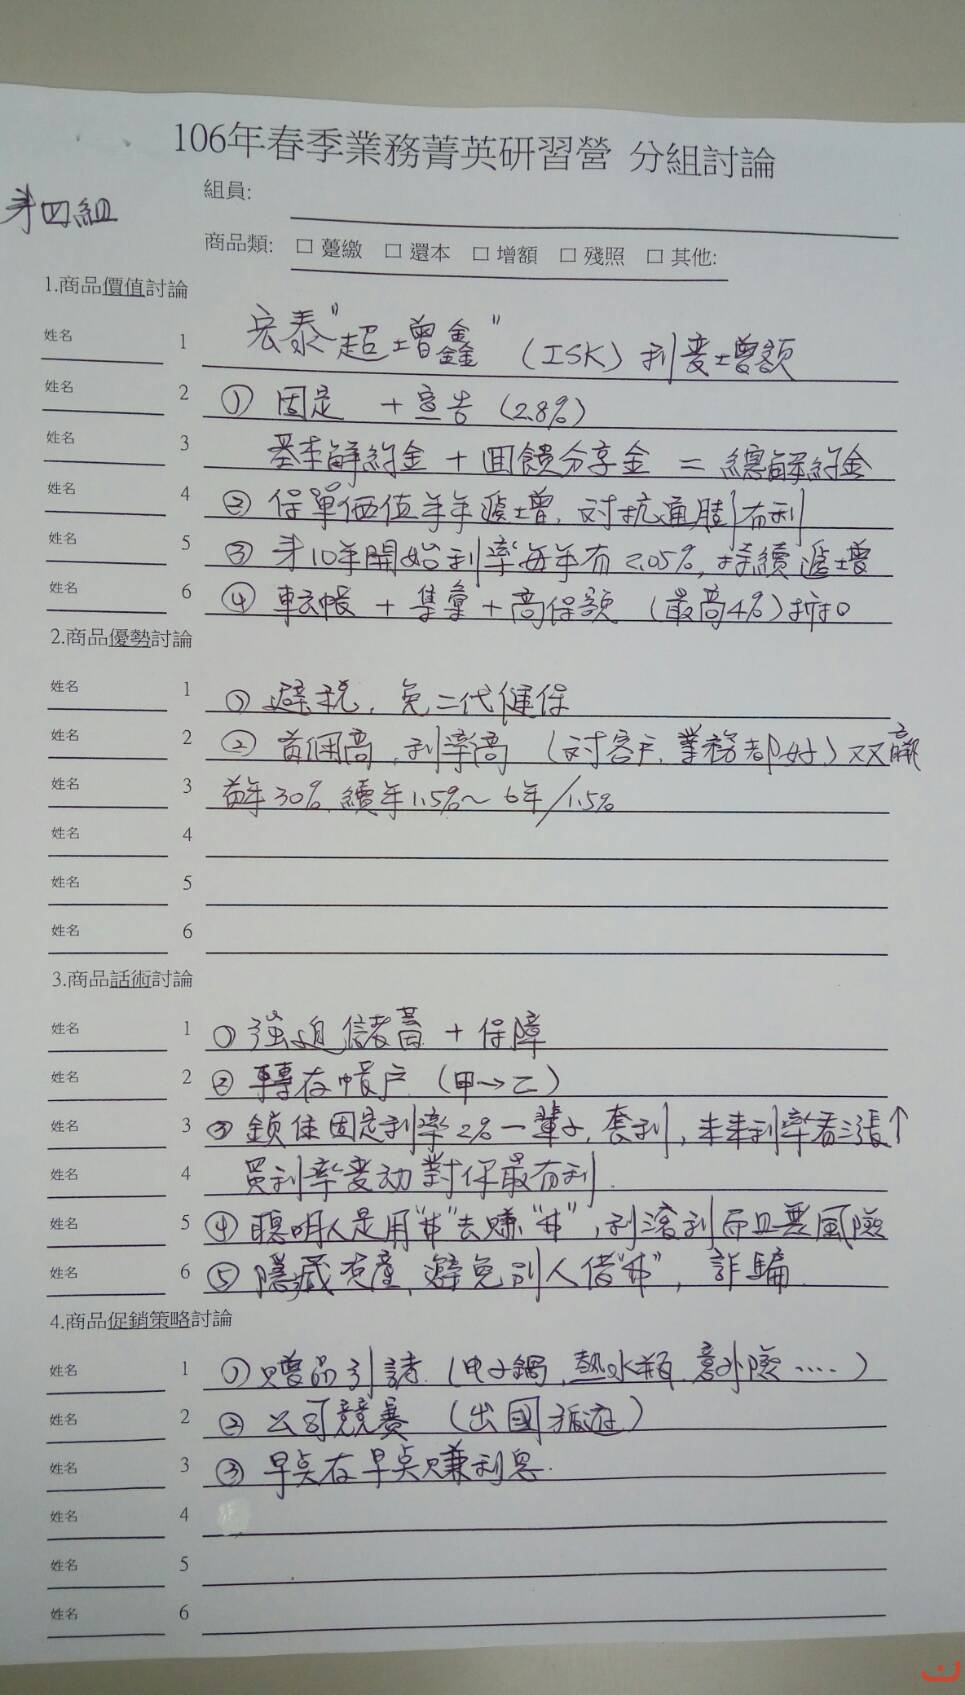 106年春季業務菁英研習營 分組討論
第四組
組員:
商品類: □ 躉繳 □ 還本 □ 增額 □ 殘照 □ 其他:
1.商品價值討論
姓名 1 宏泰"超增鑫" (ISK) 利變增額
姓名 2 ① 固定 + 宣告 (2.8%)
姓名 3 基本解約金 + 回饋分享金 = 總解約金
姓名 4 ② 保單価值年年遞增,対抗通膨有利
姓名 5 ③ 第10年開始利率每年有2.05%,持續遞增
姓名 6 ④ 転帳 + 集彙 + 高保額 (最高4%)折扣
2.商品優勢討論
姓名 1 ① 避稅,免二代健保
姓名 2 ② 首佣高,利率高 (对客戶,業務都好) 双赢
姓名 3 首年30%,續年1.5%~6年/1.5%
姓名 4
姓名 5
姓名 6
3.商品話術討論
姓名 1 ① 強迫儲蓄 + 保障
姓名 2 ② 轉存帳戶 (甲→乙)
姓名 3 ③ 鎖住固定利率2%一輩子,套利,未來利率看漲↑
姓名 4 買利率变动對你最有利.
姓名 5 ④ 聰明人是用"$"去賺"$",利滾利而且無風險
姓名 6 ⑤ 隱藏資產,避免別人借"$",詐騙.
4.商品促銷策略討論
姓名 1 ① 贈品引誘.(电子鍋,熱水瓶,意外險.....)
姓名 2 ② 公司競賽 (出國旅遊)
姓名 3 ③ 早点存早点賺利息.
姓名 4
姓名 5
姓名 6